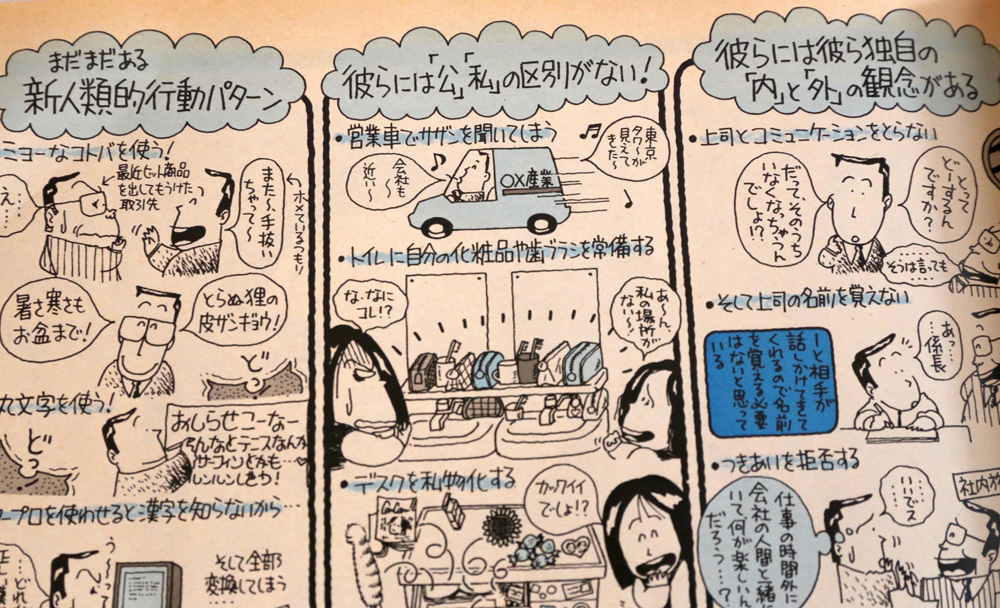 まだまだある
新人類的行動パターン
ミョーなコトバを使う!
え…
最近セット商品
を出してもうけた
取引先
また〜、手抜い
ちゃって〜
ホメているつもり
暑さ寒さも
お盆まで!
とらぬ狸の
皮ザンギョウ!
ど
丸文字を使う!
どっ
おしらせこーなー
サーフィンとかも…
ープロを使わせると漢字を知らないから…
そして全部
変換してしまう
彼らには「公」「私」の区別がない!
・営業車でサザンを聞いてしまう
会社も
近い〜
〇X産業
東京
タワーが
見えて
きた〜
・トイレに自分の化粧品や歯ブラシを常備する
な・なに
コレ!?
あ〜ん、
私の場所が
ない〜
・デスクを私物化する
カックイイ
でしょ!?
彼らには彼ら独自の
「内」と「外」の観念がある
・上司とコミュニケーションをとらない
どーするん
ですか?
だって、そのうち
いなくなっちゃうん
でしょ!?
そうは言っても
・そして上司の名前を覚えない
ーと相手が
話しかけてきて
くれるので名前
を覚える必要
はないと思って
いる
あっ…
…係長
・つきあいを拒否する
仕事の時間外に
会社の人間と一緒
いて、何が楽しいん
だろう…?
社内